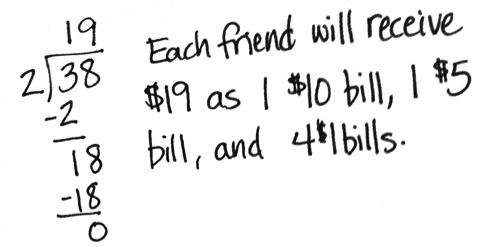 19
2)38
-2
18
-18
0
Each friend will receive
$19 as 1 $10 bill, 1 $5
bill, and 4 $1 bills.